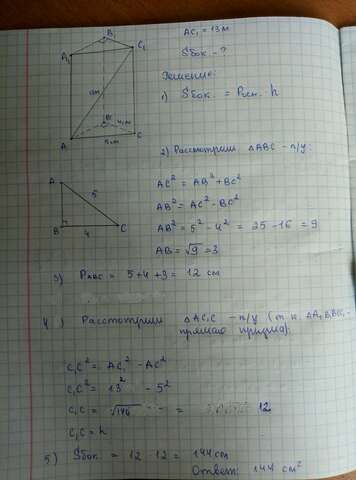 AC₁ = 13м
Sбок. - ?
Решение:
1) Sбок. = Pосн. h
B₁
A₁
C₁
B
4см
A
5см
C
2) Рассмотрим △ABC - п/у:
AC² = AB² + BC²
AB² = AC² - BC²
AB² = 5² - 4² = 25 - 16 = 9
AB = √9 = 3
A
5
B
4
C
3) PABC = 5+4+3 = 12 см
4) Рассмотрим △AC₁C - п/у (т.к.
прямая призма).
C₁C² = AC₁² - AC²
C₁C² = 13² - 5²
C₁C = = 12
C₁C = h
5) Sбок. = 12 · 12 = 144 см
Ответ: 144 см²